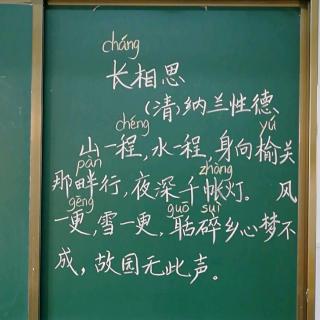 cháng
长相思
(清)纳兰性德
chéng yú
山一程,水一程,身向榆关
pàn zhàng
那畔行,夜深千帐灯。风
gēng guō suì
一更,雪一更,聒碎乡心梦不
成,故园无此声。